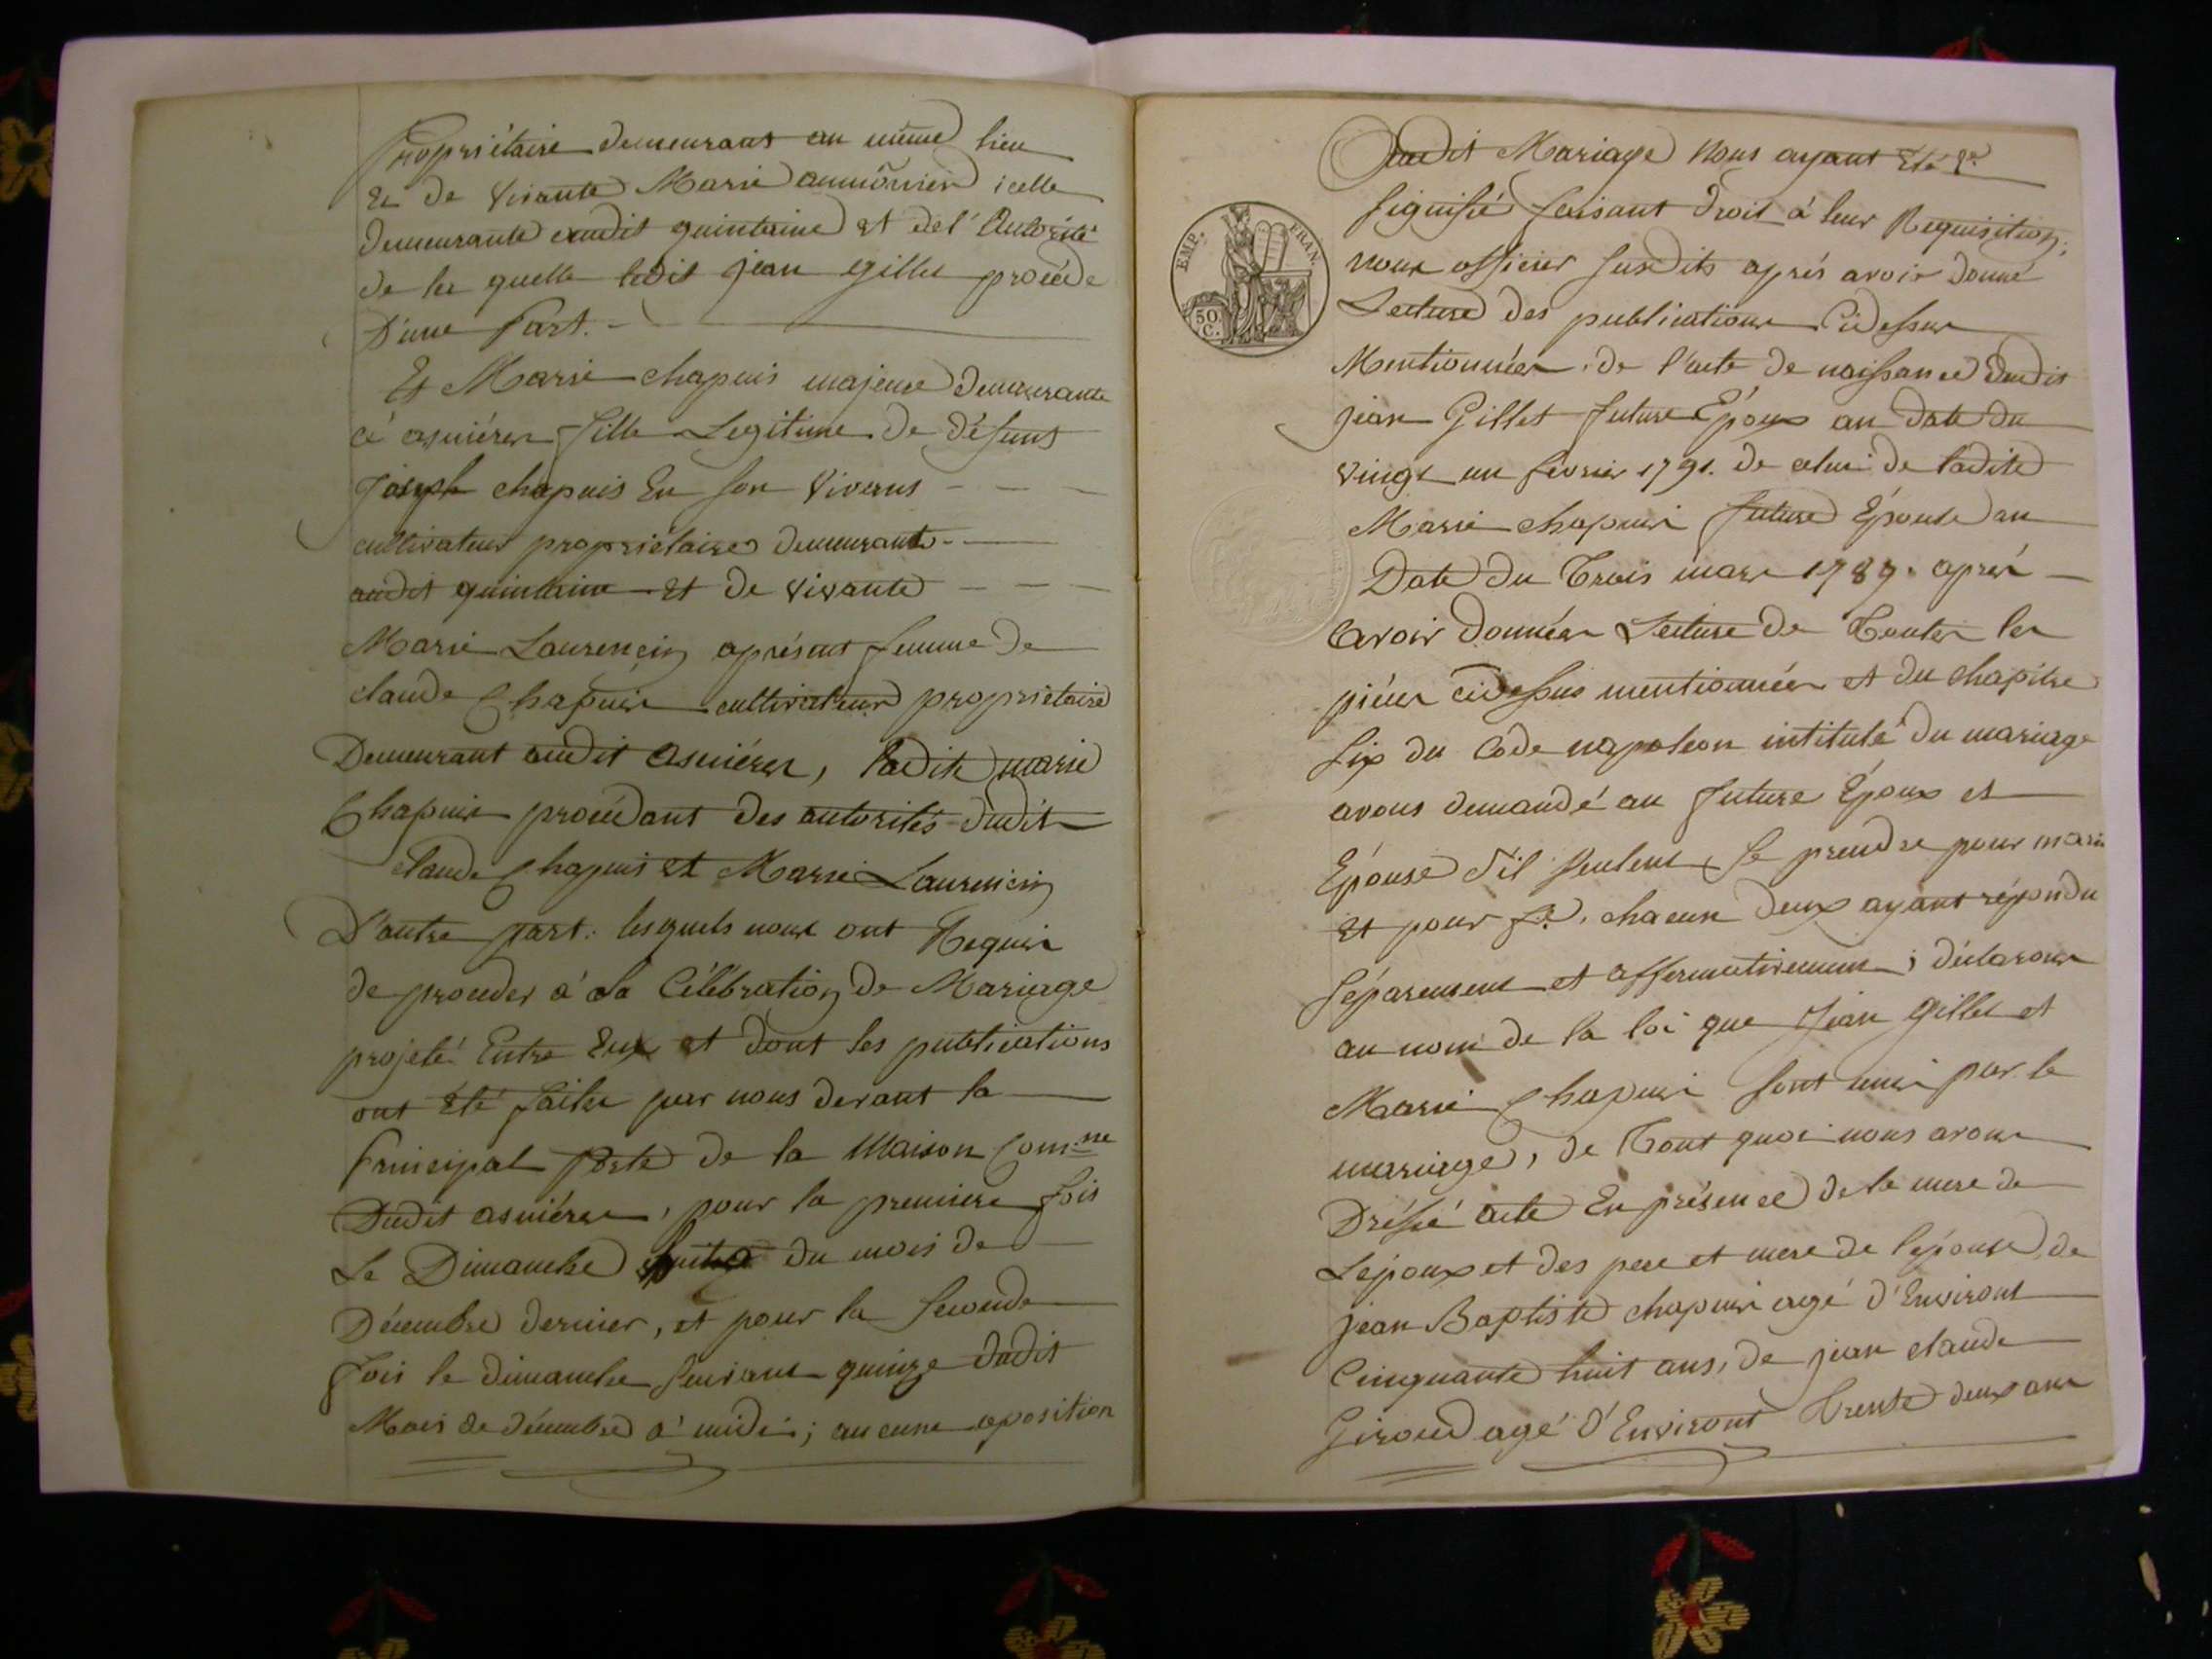 Propriétaire demeurant au même lieu
Et de vivante Marie aumônier icelle
demeurante audit quintaine et de l'Autorité
de la quelle ledit jean gillet procède
D'une Part.
Et Marie chapuis majeure demeurante
à asniéres fille Legitime de défunt
Joseph chapuis En son vivant
cultivateur propriétaire demeurant
audit quintaine Et de vivante
Marie Laurencin aprésent femme de
claude Chapuis cultivateur propriétaire
Demeurant audit asniéres, Ladite marie
Chapuis procédant des autorités dudit
claude Chapuis et Marie Laurencin
D'autre part: lesquels nous ont Requis
de proceder à La Célébration de Mariage
projeté Entre Eux et dont les publications
ont Eté faites par nous devant la
Principal Porte de la Maison Comne
Dudit asniéres, pour la premiere fois
Le Dimanche du mois de
Décembre dernier, et pour la seconde
fois le dimanche suivant quinze dudit
Mois de décembre à midi; aucune oposition
Audit Mariage Nous ayant Eté
signifié faisant droit à leur Requisition;
nous officier susdits aprés avoir donné
Lecture des publications Cidessus
Mentionnées, de l'acte de naissance dudit
jean Gillet future Epoux au date du
vingt un fevrier 1791. de celui de ladite
Marie chapuis future Epouse au
Date du Trois mars 1789. aprés
avoir données Lecture de Toutes les
piéces cidessus mentionnées et du chapitre
six du Code napoleon intitulé du mariage
avons demandé au future Epoux et
Epouse s'il veulent se prendre pour mari
Et pour fe. chacun deux ayant répondu
séparement et affermativement; déclarons
au nom de la loi que Jean gillet et
Marie Chapuis sont unis par le
mariage, de Tout quoi nous avons
Dréssé acte En présence de la mere de
L'epoux et des pere et mere de l'épouse, de
jean Baptiste chapuis agé d'Environt
Cinquante huit ans, de jean claude
Giroud agé d'Environt Trente deux ans
EMP. FRAN.
50 C.